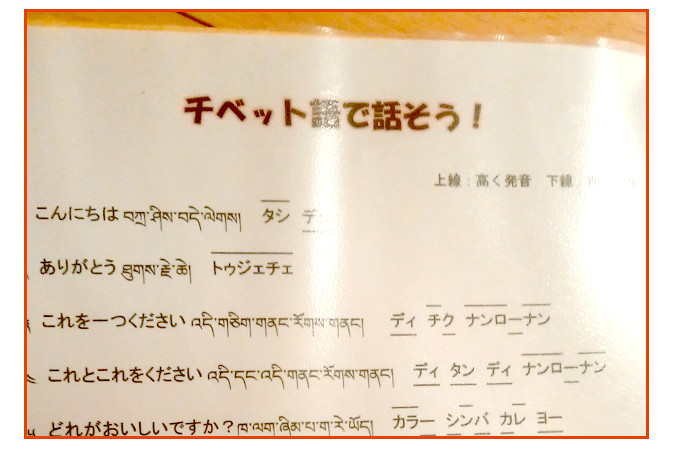 チベット語で話そう！
上線：高く発音 下線：
こんにちは བཀྲ་ཤིས་བདེ་ལེགས། タシ デ
ありがとう ཐུགས་རྗེ་ཆེ། トゥジェチェ
これを一つください འདི་གཅིག་གནང་རོགས་གནང། ディ チク ナンローナン
これとこれをください འདི་དང་འདི་གནང་རོགས་གནང། ディ タン ディ ナンローナン
どれがおいしいですか？ཁ་ལག་ཞིམ་པ་ག་རེ་ཡོད། カラー シンバ カレ ヨー